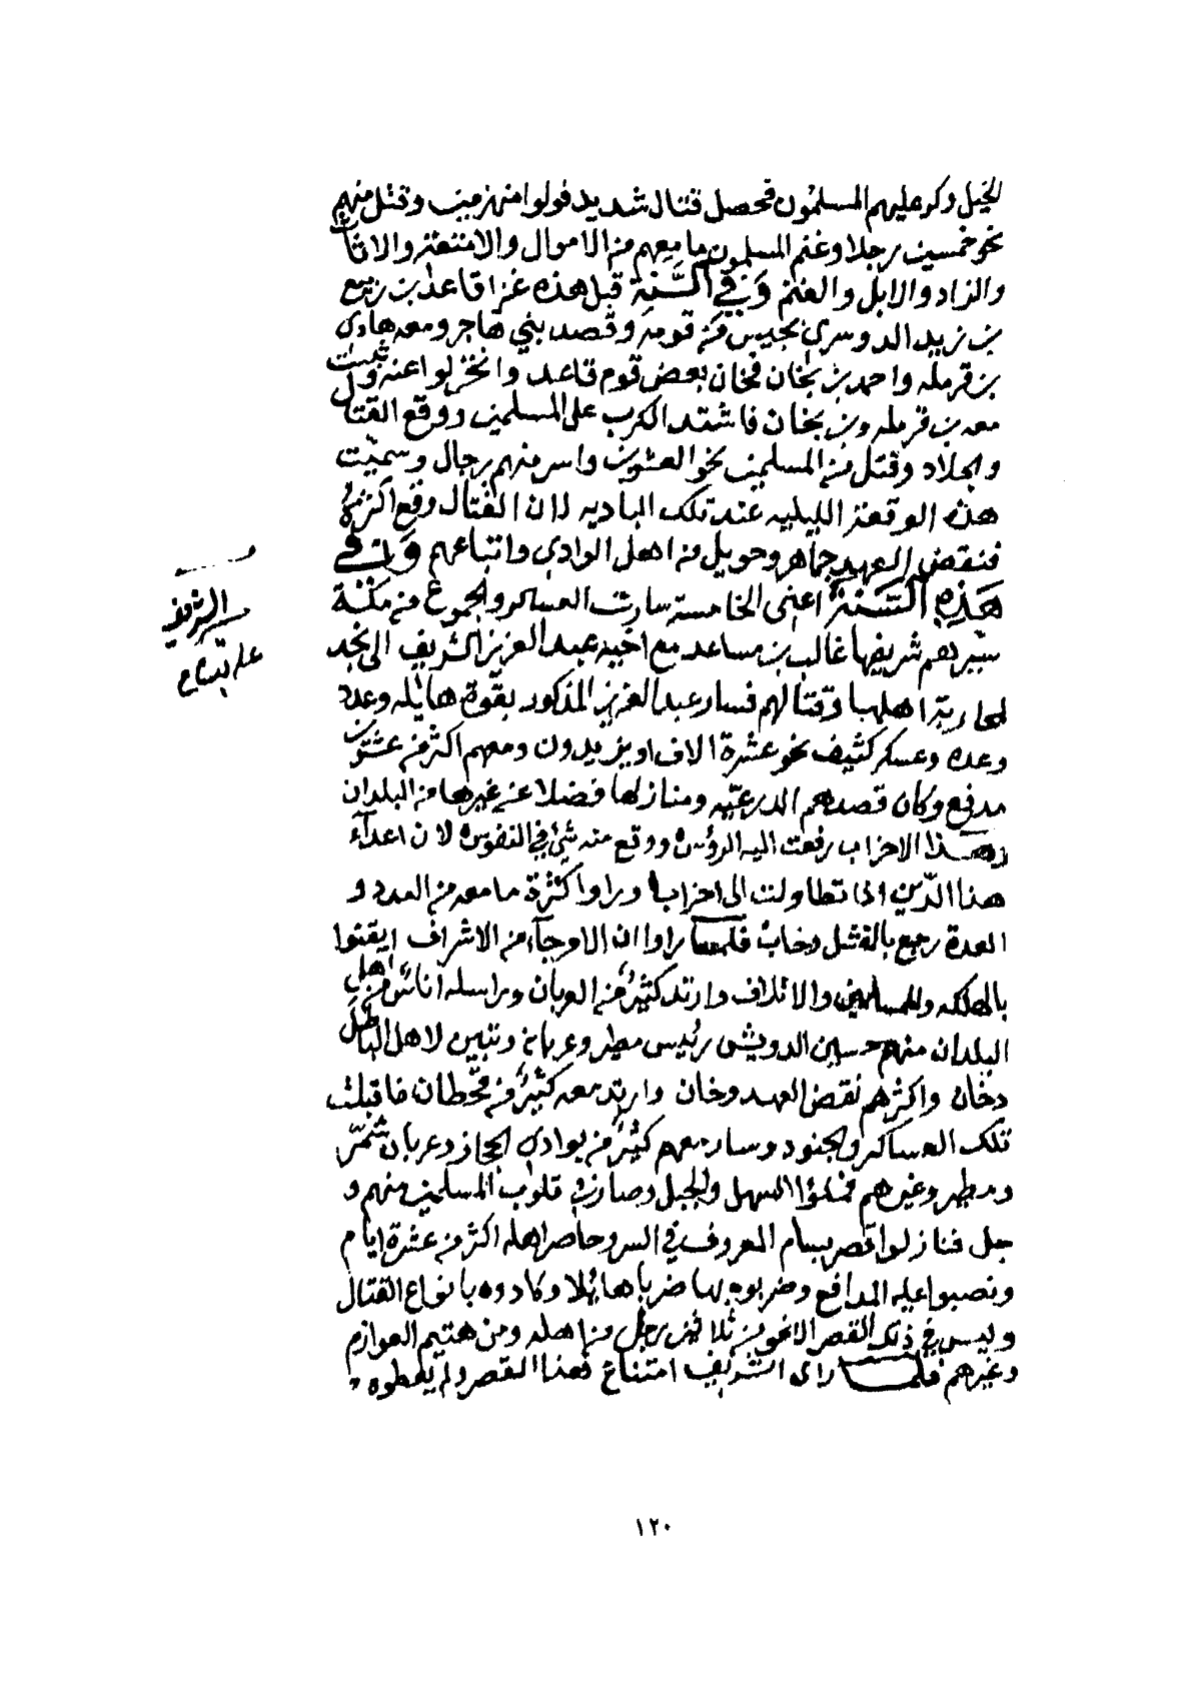 الخيل وكر عليهم المسلمون فحصل قتال شديد فولوا منهزمين وقتل منهم
نحو خمسين رجلا وغنم المسلمون ما معهم من الاموال والامتعة والاثاث
والزاد والابل والغنم وفي السنة قبل هذه غزا قاعد بن ربيع
بن زيد الدوسري بجيش من قومه وقصد بني هاجر ومعه هادي
بن قرمله واحمد بن بخان فخان بعض قوم قاعد وانخزلوا عنه وثبت
معه بن قرمله وبن بخان فاشتد الكرب على المسلمين ووقع القتال
والجلاد وقتل من المسلمين نحو العشرين واسر منهم رجال وسميت
هذه الوقعة الليليه عند تلك الباديه لان القتال وقع اكثره
فنقض العهد جماهر وحويل من اهل الوادي واتباعهم وفي
هذه السنة اعني الخامسة سارت العساكر والجموع من مكة
سيرهم شريفها غالب بن مساعد مع اخيه عبد العزيز الشريف الى نجد
لمحاربة اهلها وقتالهم فسار عبد العزيز المذكور بقوة هايله وعدد
وعده وعسكر كثيف نحو عشرة الاف او يزيدون ومعهم اكثر من عشرين
مدفع وكان قصدهم الدرعيه ومنازلها فضلا عن غيرها من البلدان
وهذا الاحزاب رفعت اليه الرؤس ووقع منه شئ في النفوس لان اعدآء
هذا الدين اذا تطاولت الى احزاب وراوا كثرة ما معه من العدد و
العدة رجع بالفشل وخاب فلما راوا ان الامر جآء من الاشراف ايقنوا
بالهلكه وللمسلمين والاتلاف وارتد كثير من العربان وراسله اناس من اهل
البلدان منهم حسين الدويش رئيس مطير وعربانه وتبين لاهل الباطل
دخان واكثرهم نقض العهد وخان وارتد معه كثير من قحطان فاقبلت
تلك العساكر والجنود وسار معهم كثير من بوادي الحجاز وعربان شمر
ومطير وغيرهم فملؤا السهل والجبل وصار في قلوب المسلمين منهم و
جل فنازلوا قصر بسام المعروف في السر وحاصر اهله اكثر من عشرة ايام
ونصبوا عليه المدافع وضربوه بها ضربا هايلا وكادوه بانواع القتال
وليس في ذلك القصر الا نحو من ثلاثين رجل من اهله ومن هتيم العوازم
وغيرهم فلما راى الشريف امتناع هذا القصر ولم يعطوه
مسير الشريف
على بسام
١٢٠